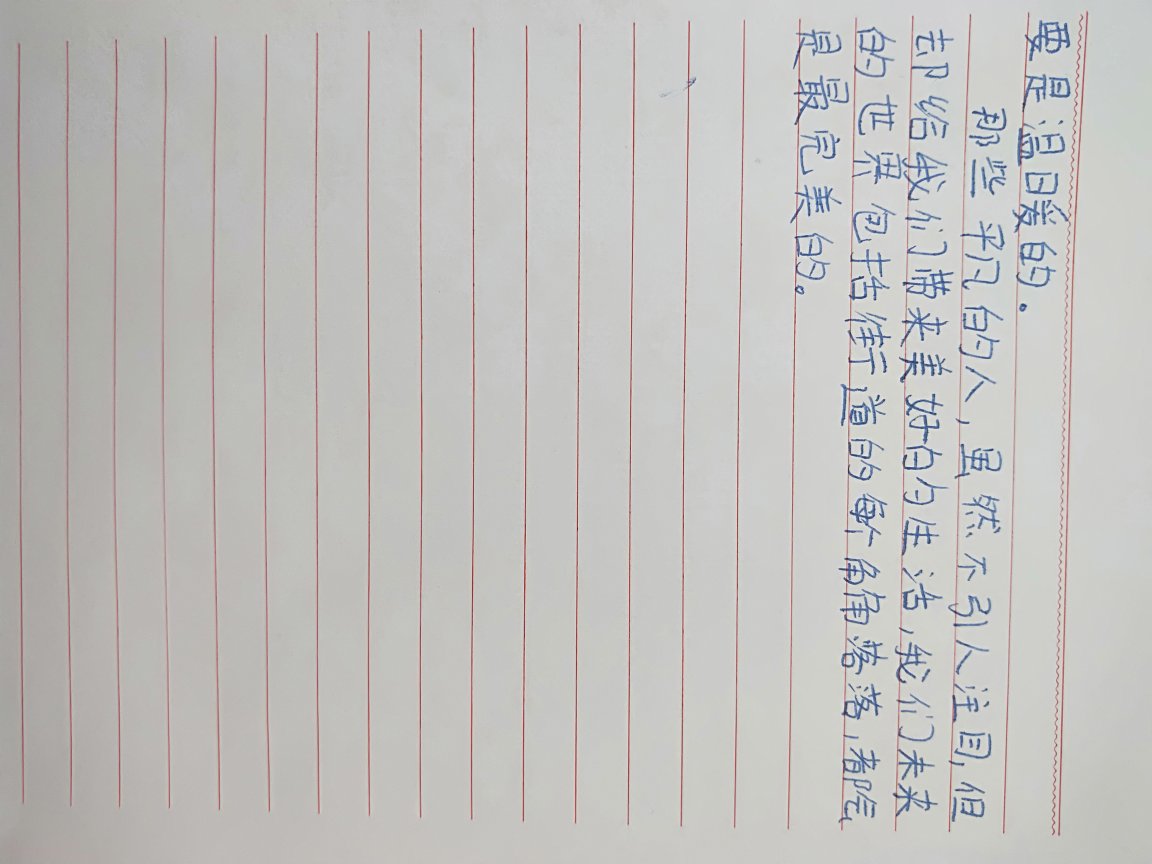 要是温暖的。
那些平凡的人，虽然不引人注目，但
却给我们带来美好的生活，我们未来
的世界包括街道的每个角角落落，都
是最完美的。